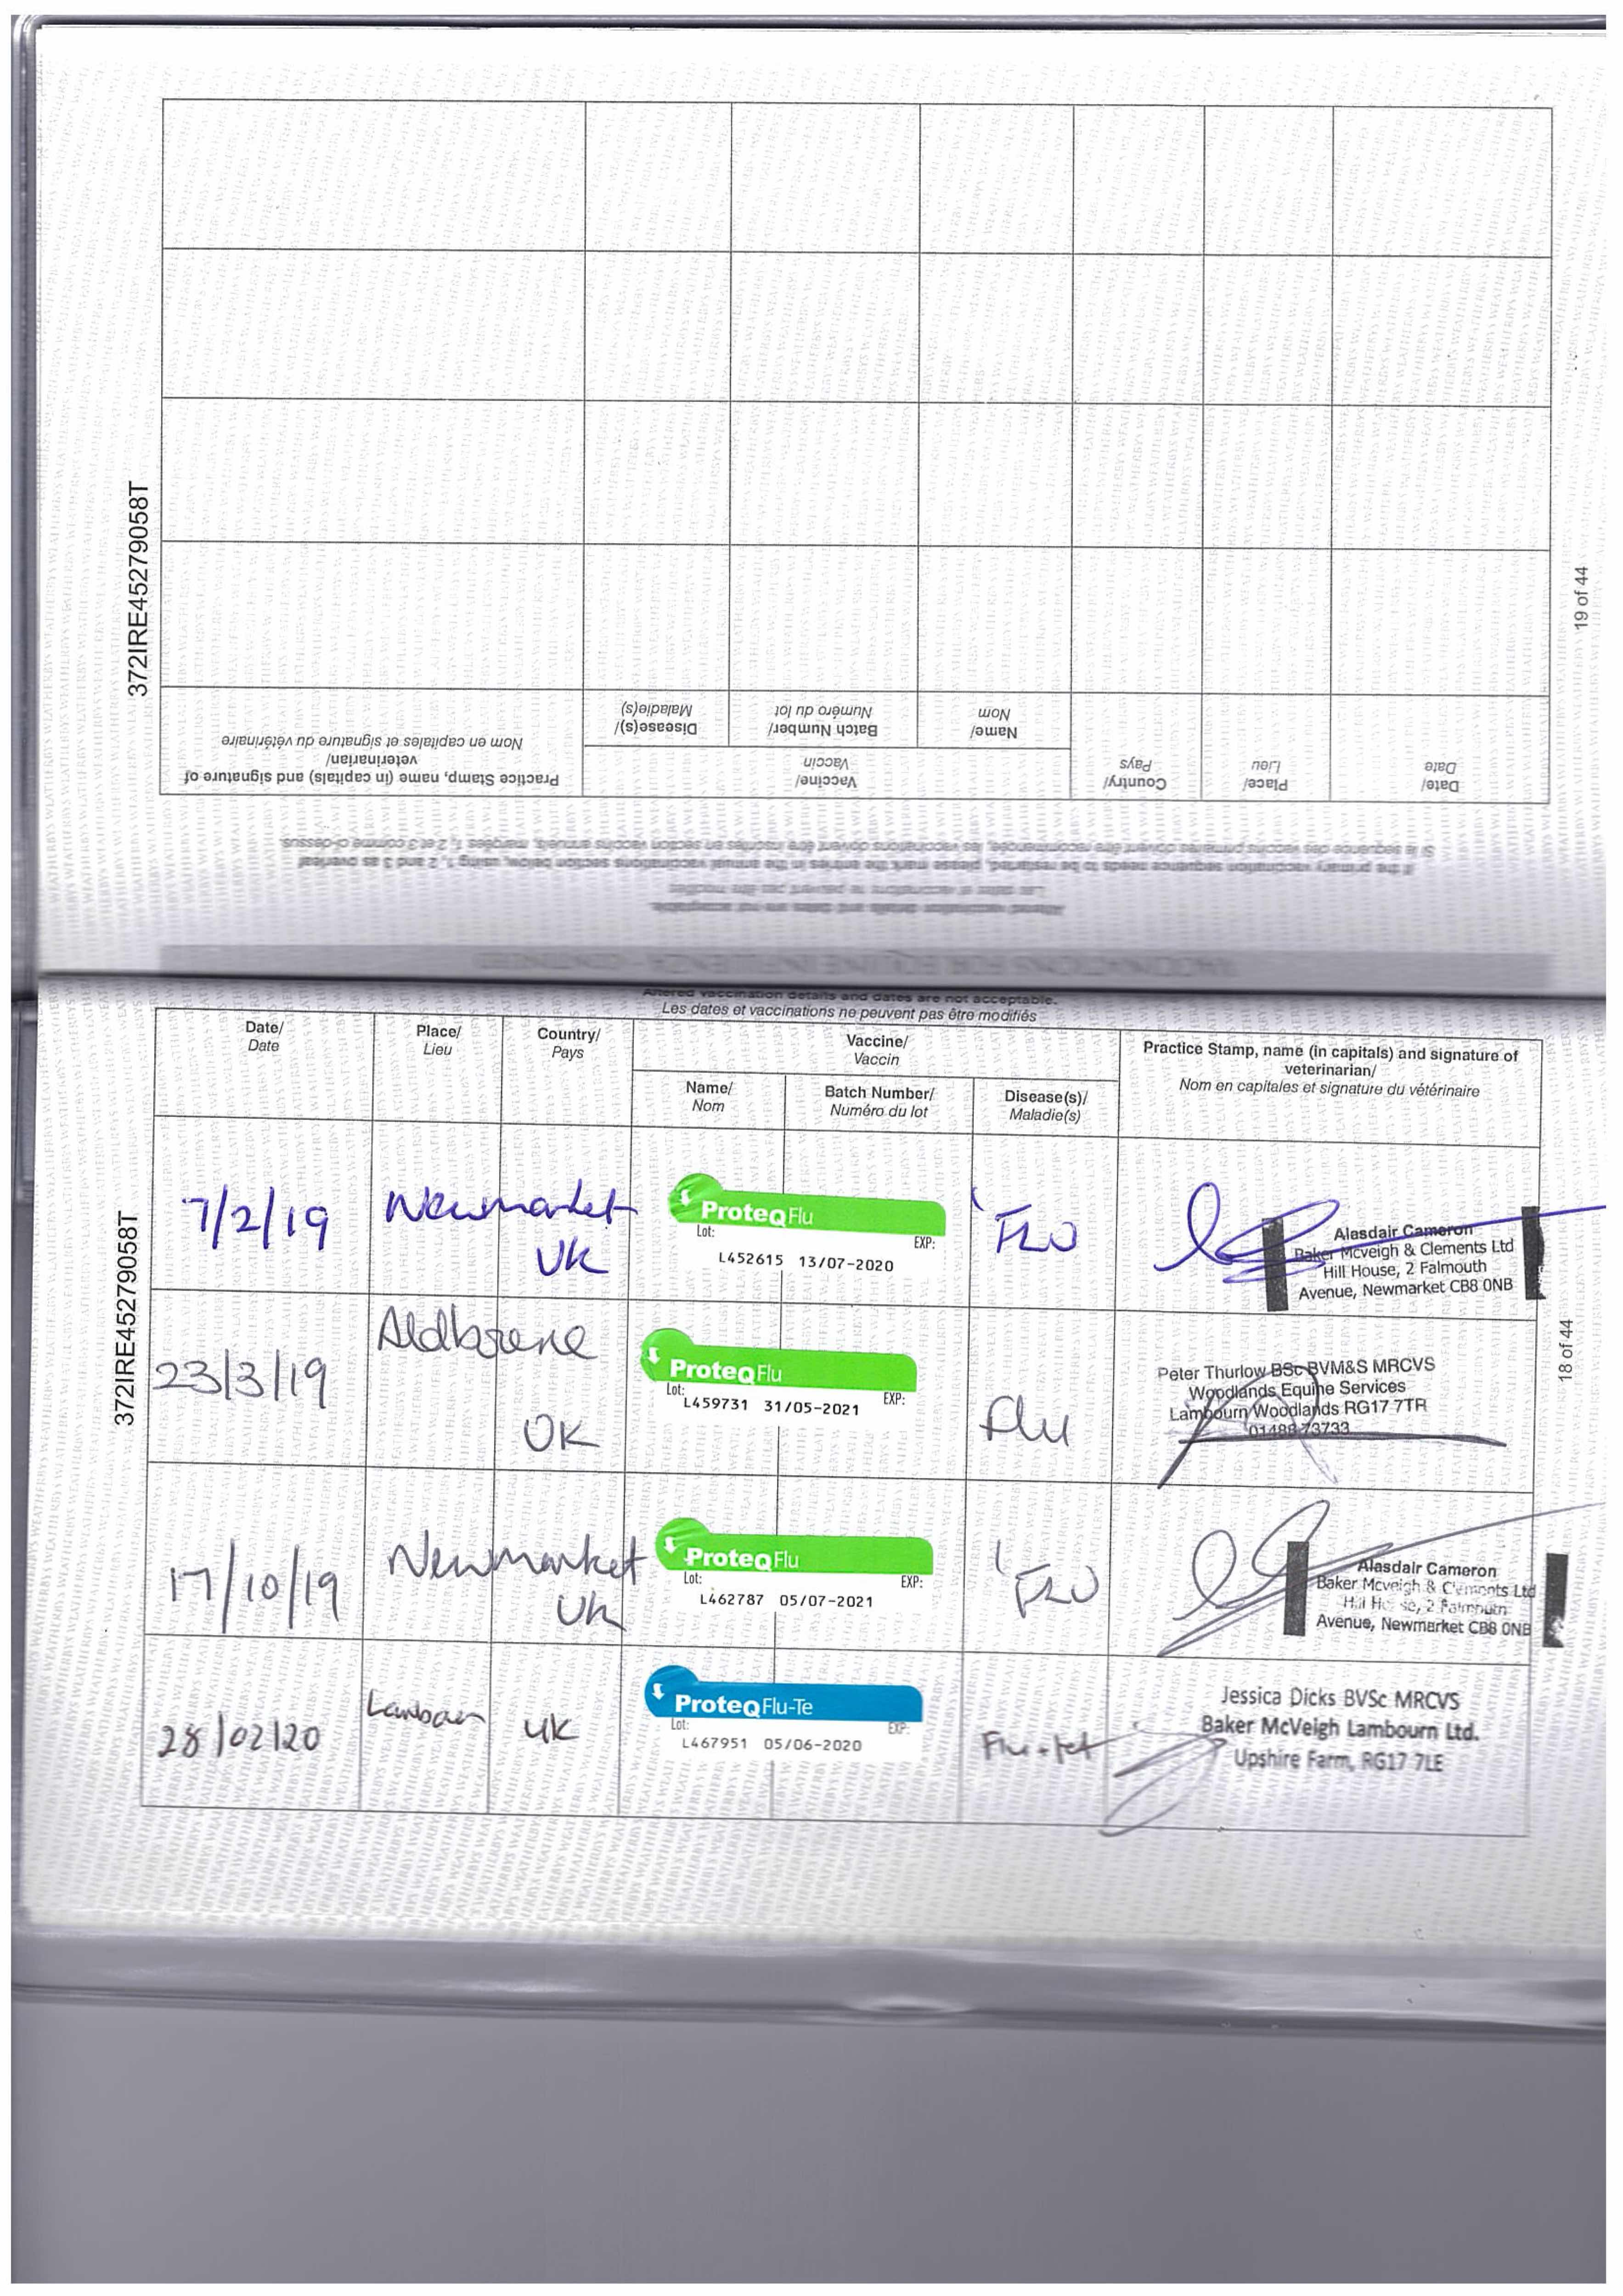 372IRE45279058T
19 of 44
VACCINATIONS FOR EQUINE INFLUENZA - CONTINUED
Altered vaccination details and dates are not acceptable.
Les dates et vaccinations ne peuvent pas être modifiés
If the primary vaccination sequence needs to be restarted, please mark the entries in the annual vaccinations section below, using 1, 2 and 3 as overleaf
Si la séquence des vaccins primaires doivent être recommencée, les vaccinations doivent être inscrites en section vaccins annuels, marquées 1, 2 et 3 comme ci-dessus.
Date/
Date
Place/
Lieu
Country/
Pays
Vaccine/
Vaccin
Name/
Nom
Batch Number/
Numéro du lot
Disease(s)/
Maladie(s)
Practice Stamp, name (in capitals) and signature of
veterinarian/
Nom en capitales et signature du vétérinaire
Altered vaccination details and dates are not acceptable.
Les dates et vaccinations ne peuvent pas être modifiés
372IRE45279058T
18 of 44
Date/
Date
Place/
Lieu
Country/
Pays
Vaccine/
Vaccin
Name/
Nom
Batch Number/
Numéro du lot
Disease(s)/
Maladie(s)
Practice Stamp, name (in capitals) and signature of
veterinarian/
Nom en capitales et signature du vétérinaire
7/2/19
Newmarket
UK
ProteqFlu
Lot: EXP:
L452615 13/07-2020
FLU
Alasdair Cameron
Baker Mcveigh & Clements Ltd
Hill House, 2 Falmouth
Avenue, Newmarket CB8 0NB
23/3/19
Aldbourne
UK
ProteqFlu
Lot: EXP:
L459731 31/05-2021
Flu
Peter Thurlow BSc BVM&S MRCVS
Woodlands Equine Services
Lambourn Woodlands RG17 7TR
01488 73733
17/10/19
Newmarket
UK
ProteqFlu
Lot: EXP:
L462787 05/07-2021
FLU
Alasdair Cameron
Baker Mcveigh & Clements Ltd
Hill House, 2 Falmouth
Avenue, Newmarket CB8 0NB
28/02/20
Lambourn
UK
ProteqFlu-Te
Lot: EXP:
L467951 05/06-2020
Flu + tet
Jessica Dicks BVSc MRCVS
Baker McVeigh Lambourn Ltd.
Upshire Farm, RG17 7LE